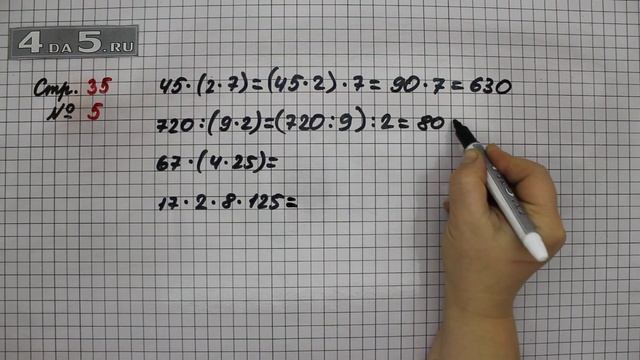 4DA5.RU
Стр. 35
№ 5
45·(2·7)=(45·2)·7=90·7=630
720:(9·2)=(720:9):2=80
67·(4·25)=
17·2·8·125=